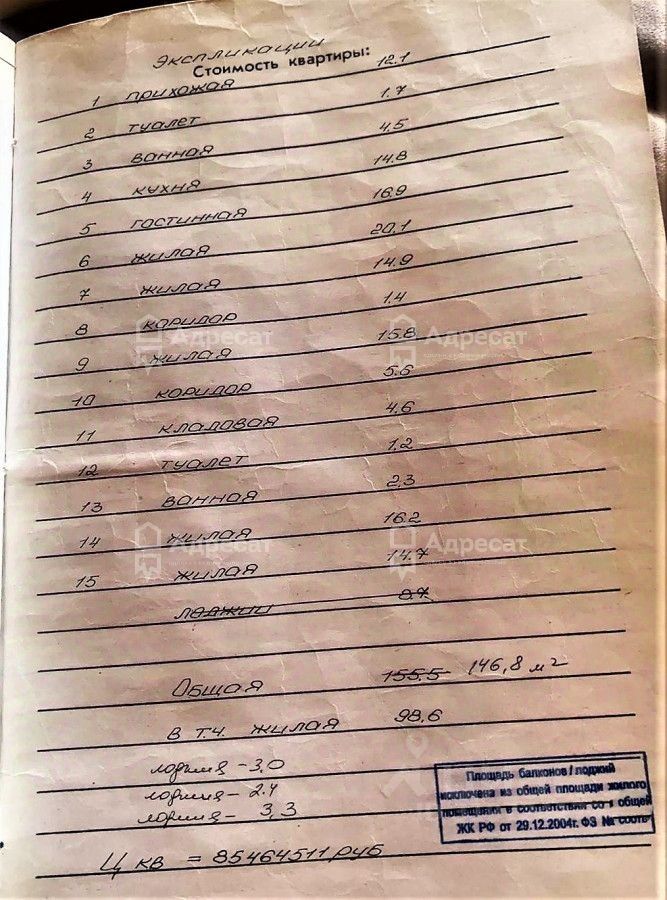 Экспликации
Стоимость квартиры:
1 прихожая 12.1
2 туалет 1.7
3 ванная 4.5
4 кухня 14.8
5 гостинная 16.9
6 жилая 20.1
7 жилая 14.9
8 коридор 1.4
9 жилая 15.8
10 коридор 5.6
11 кладовая 4.6
12 туалет 1.2
13 ванная 2.3
14 жилая 16.2
15 жилая 14.7
лоджии 8.7
Общая 155.5 146,8 м2
в т.ч. жилая 98.6
лоджия - 3.0
лоджия - 2.4
лоджия - 3,3
Ц кв = 85464511 руб
Площадь балконов / лоджий
исключена из общей площади жилого
помещения в соответствии со
ЖК РФ от 29.12.2004г. ФЗ №
Адресат
Адресат
Адресат
Адресат